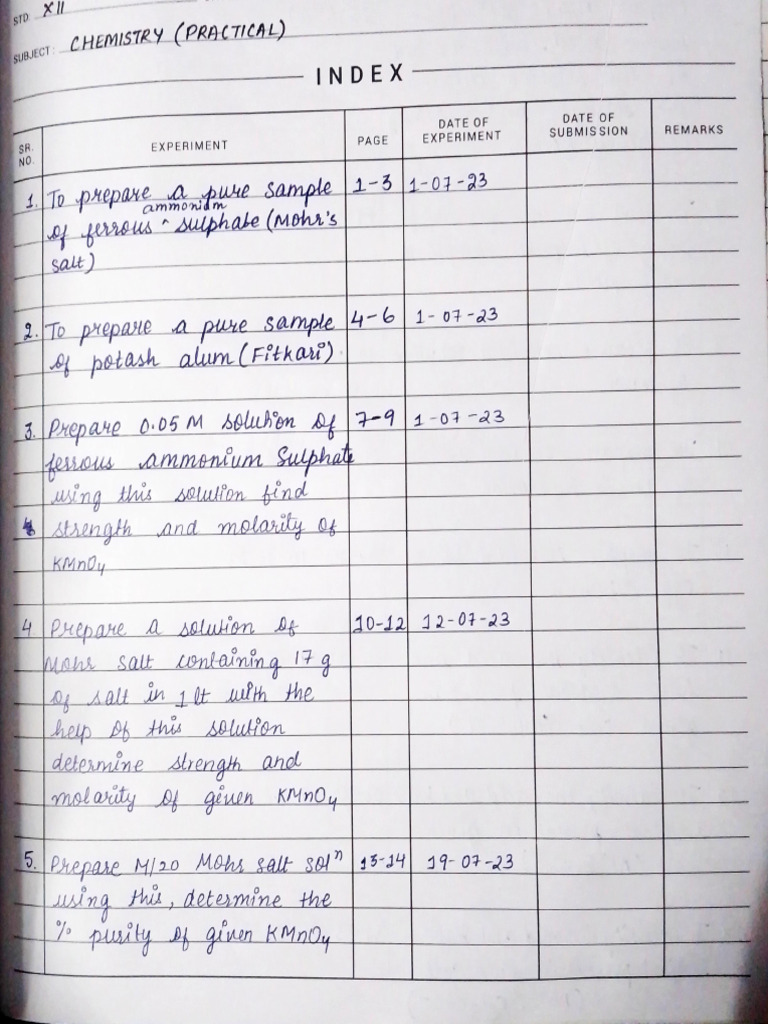 STD. XII
SUBJECT: CHEMISTRY (PRACTICAL)
INDEX
SR. NO. EXPERIMENT PAGE DATE OF EXPERIMENT DATE OF SUBMISSION REMARKS
1. To prepare a pure sample 1-3 1-07-23
ammonium
of ferrous ^ sulphate (Mohr's
salt)
2. To prepare a pure sample 4-6 1-07-23
of potash alum (Fitkari)
3. Prepare 0.05 M solution of 7-9 1-07-23
ferrous ammonium Sulphate
using this solution find
strength and molarity of
KMnO4
4 Prepare a solution of 10-12 12-07-23
Mohr salt containing 17 g
of salt in 1 lt with the
help of this solution
determine strength and
molarity of given KMnO4
5. Prepare M/20 Mohrs salt solⁿ 13-14 19-07-23
using this, determine the
% purity of given KMnO4